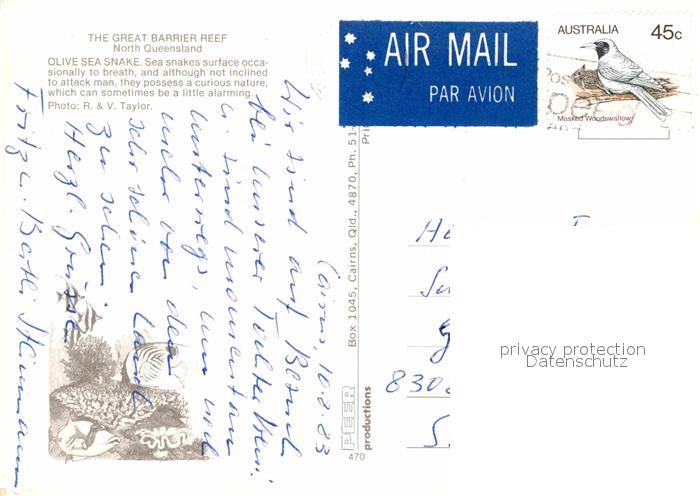 THE GREAT BARRIER REEF
North Queensland
OLIVE SEA SNAKE. Sea snakes surface occa-
sionally to breath, and although not inclined
to attack man, they possess a curious nature,
which can sometimes be a little alarming.
Photo: R. & V. Taylor.
AIR MAIL
PAR AVION
AUSTRALIA 45c
Masked Woodswallow
Cairns, 10.8.83
Wir sind auf Besuch
bei unserer Tochter
u. sind momentan
unterwegs, um
mehr von dem
sehr schönen Land
zu sehen.
Herzl. Grüsse
Fritz u. Berthi
PEER
productions
Box 1045, Cairns, Qld., 4870, Ph. 51-
470
830
privacy protection
Datenschutz